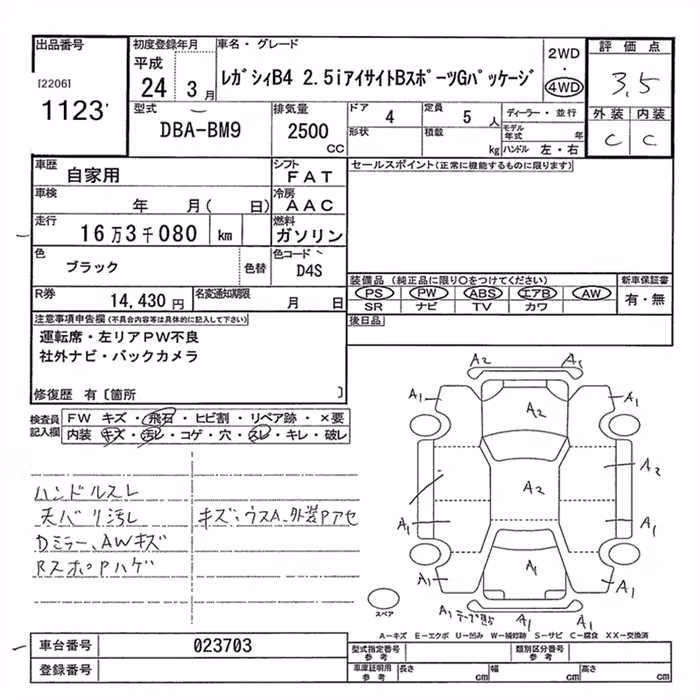 出品番号
[2206]
1123
初度登録年月
平成
24 3月
車名・グレード
レガシィB4 2.5iアイサイトBスポーツGパッケージ
2WD
・
4WD
評価点
3.5
外装 内装
C C
型式
DBA-BM9
排気量
2500
CC
ドア
4
定員
5 人
形状
積載
kg
ディーラー・並行
モデル年式 年
ハンドル 左・右
車歴
自家用
シフト
FAT
車検
年 月( 日)
冷房
AAC
走行
16万3千080 km
燃料
ガソリン
色
ブラック
色替
色コード
D4S
R券
14,430円
名変通知期限
月 日
セールスポイント(正常に機能するものに限ります)
装備品(純正品に限り○をつけてください)
PS PW ABS エアB AW
SR ナビ TV カワ
新車保証書
有・無
後日品
注意事項申告欄(不具合内容等は具体的に記入して下さい)
運転席・左リアPW不良
社外ナビ・バックカメラ
修復歴 有〔箇所 〕
検査員記入欄
FW キズ・飛石・ヒビ割・リペア跡・×要
内装 キズ・汚レ・コゲ・穴・スレ・キレ・破レ
ハンドルスレ
天バリ汚レ
キズ、ウスA、外装Pアセ
Dミラー、AWキズ
RスポPハゲ
A2 A1
A1 A2 A1
A2
A2
A1 A1
A1 A1 A1
A1 A1
スペア
A-キズ E-エクボ U-凹み W-補修跡 S-サビ C-腐食 XX-交換済
車台番号
023703
登録番号
型式指定番号
参考
類別区分番号
参考
車庫証明用
参考
長さ cm
幅 cm
高さ cm